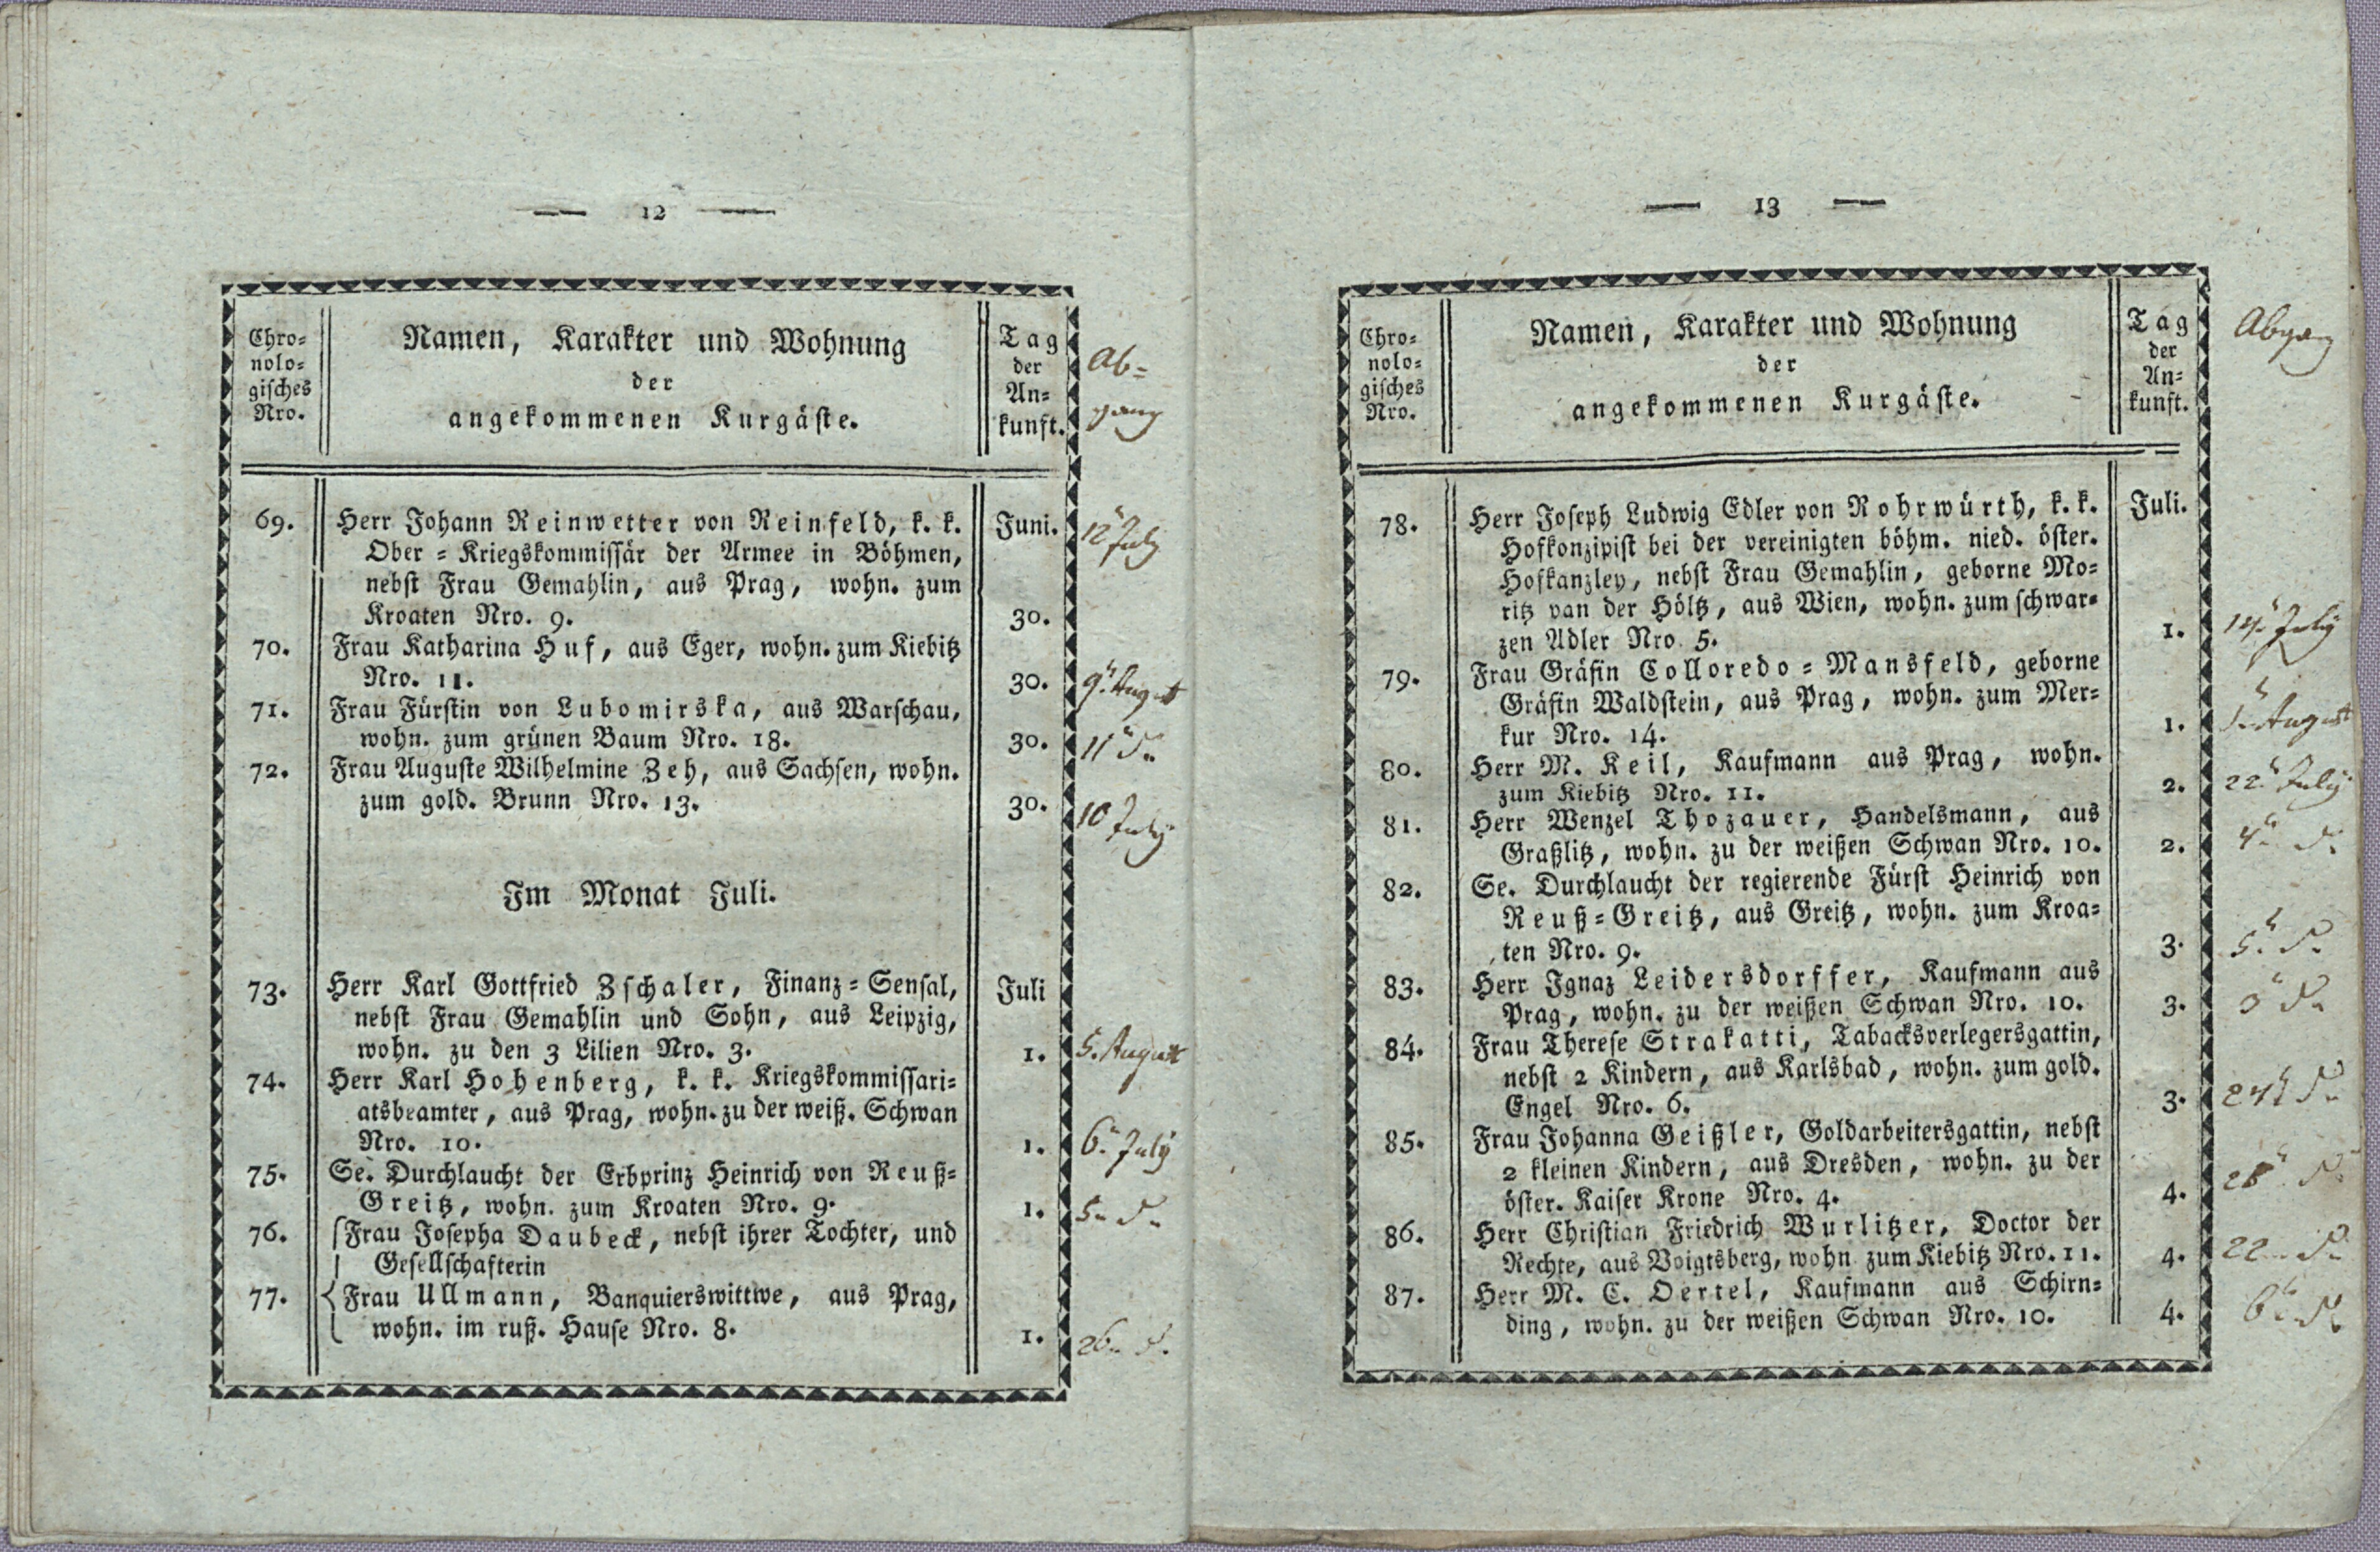 — 12 —
Chro=
nolo=
gisches
Nro.
Namen, Karakter und Wohnung
der
angekommenen Kurgäste.
Tag
der
An=
kunft.
Ab=
gang
69. Herr Johann Reinwetter von Reinfeld, k. k. Juni. 12 July
Ober = Kriegskommissär der Armee in Böhmen,
nebst Frau Gemahlin, aus Prag, wohn. zum
Kroaten Nro. 9. 30.
70. Frau Katharina Huf, aus Eger, wohn. zum Kiebitz
Nro. 11. 30. 9. August
71. Frau Fürstin von Lubomirska, aus Warschau,
wohn. zum grünen Baum Nro. 18. 30. 11 d.
72. Frau Auguste Wilhelmine Zeh, aus Sachsen, wohn.
zum gold. Brunn Nro. 13. 30. 10 July
Im Monat Juli.
73. Herr Karl Gottfried Zschaler, Finanz = Sensal, Juli
nebst Frau Gemahlin und Sohn, aus Leipzig,
wohn. zu den 3 Lilien Nro. 3. 1. 5. August
74. Herr Karl Hohenberg, k. k. Kriegskommissari=
atsbeamter, aus Prag, wohn. zu der weiß. Schwan
Nro. 10. 1. 6. July
75. Se. Durchlaucht der Erbprinz Heinrich von Reuß=
Greitz, wohn. zum Kroaten Nro. 9. 1. 5. d.
76. Frau Josepha Daubeck, nebst ihrer Tochter, und
Gesellschafterin
77. Frau Ullmann, Banquierswittwe, aus Prag,
wohn. im ruß. Hause Nro. 8. 1. 26. d.
— 13 —
Chro=
nolo=
gisches
Nro.
Namen, Karakter und Wohnung
der
angekommenen Kurgäste.
Tag
der
An=
kunft.
Abgang
78. Herr Joseph Ludwig Edler von Rohrwürth, k. k. Juli.
Hofkonzipist bei der vereinigten böhm. nied. öster.
Hofkanzley, nebst Frau Gemahlin, geborne Mo=
ritz van der Höltz, aus Wien, wohn. zum schwar=
zen Adler Nro. 5. 1. 14. July
79. Frau Gräfin Colloredo = Mansfeld, geborne
Gräfin Waldstein, aus Prag, wohn. zum Mer=
kur Nro. 14. 1. August
80. Herr M. Keil, Kaufmann aus Prag, wohn.
zum Kiebitz Nro. 11. 2. 22. July
81. Herr Wenzel Thozauer, Handelsmann, aus
Graßlitz, wohn. zu der weißen Schwan Nro. 10. 2. 4. d.
82. Se. Durchlaucht der regierende Fürst Heinrich von
Reuß = Greitz, aus Greitz, wohn. zum Kroa=
ten Nro. 9. 3. 5. d.
83. Herr Ignaz Leidersdorffer, Kaufmann aus
Prag, wohn. zu der weißen Schwan Nro. 10. 3. d.
84. Frau Therese Strakatti, Tabacksverlegersgattin,
nebst 2 Kindern, aus Karlsbad, wohn. zum gold.
Engel Nro. 6. 3. 24 d.
85. Frau Johanna Geißler, Goldarbeitersgattin, nebst
2 kleinen Kindern, aus Dresden, wohn. zu der
öster. Kaiser Krone Nro. 4. 4. 28. d.
86. Herr Christian Friedrich Wurlitzer, Doctor der
Rechte, aus Voigtsberg, wohn zum Kiebitz Nro. 11. 4. 22. d.
87. Herr M. C. Oertel, Kaufmann aus Schirn=
ding, wohn. zu der weißen Schwan Nro. 10. 4. 6. d.